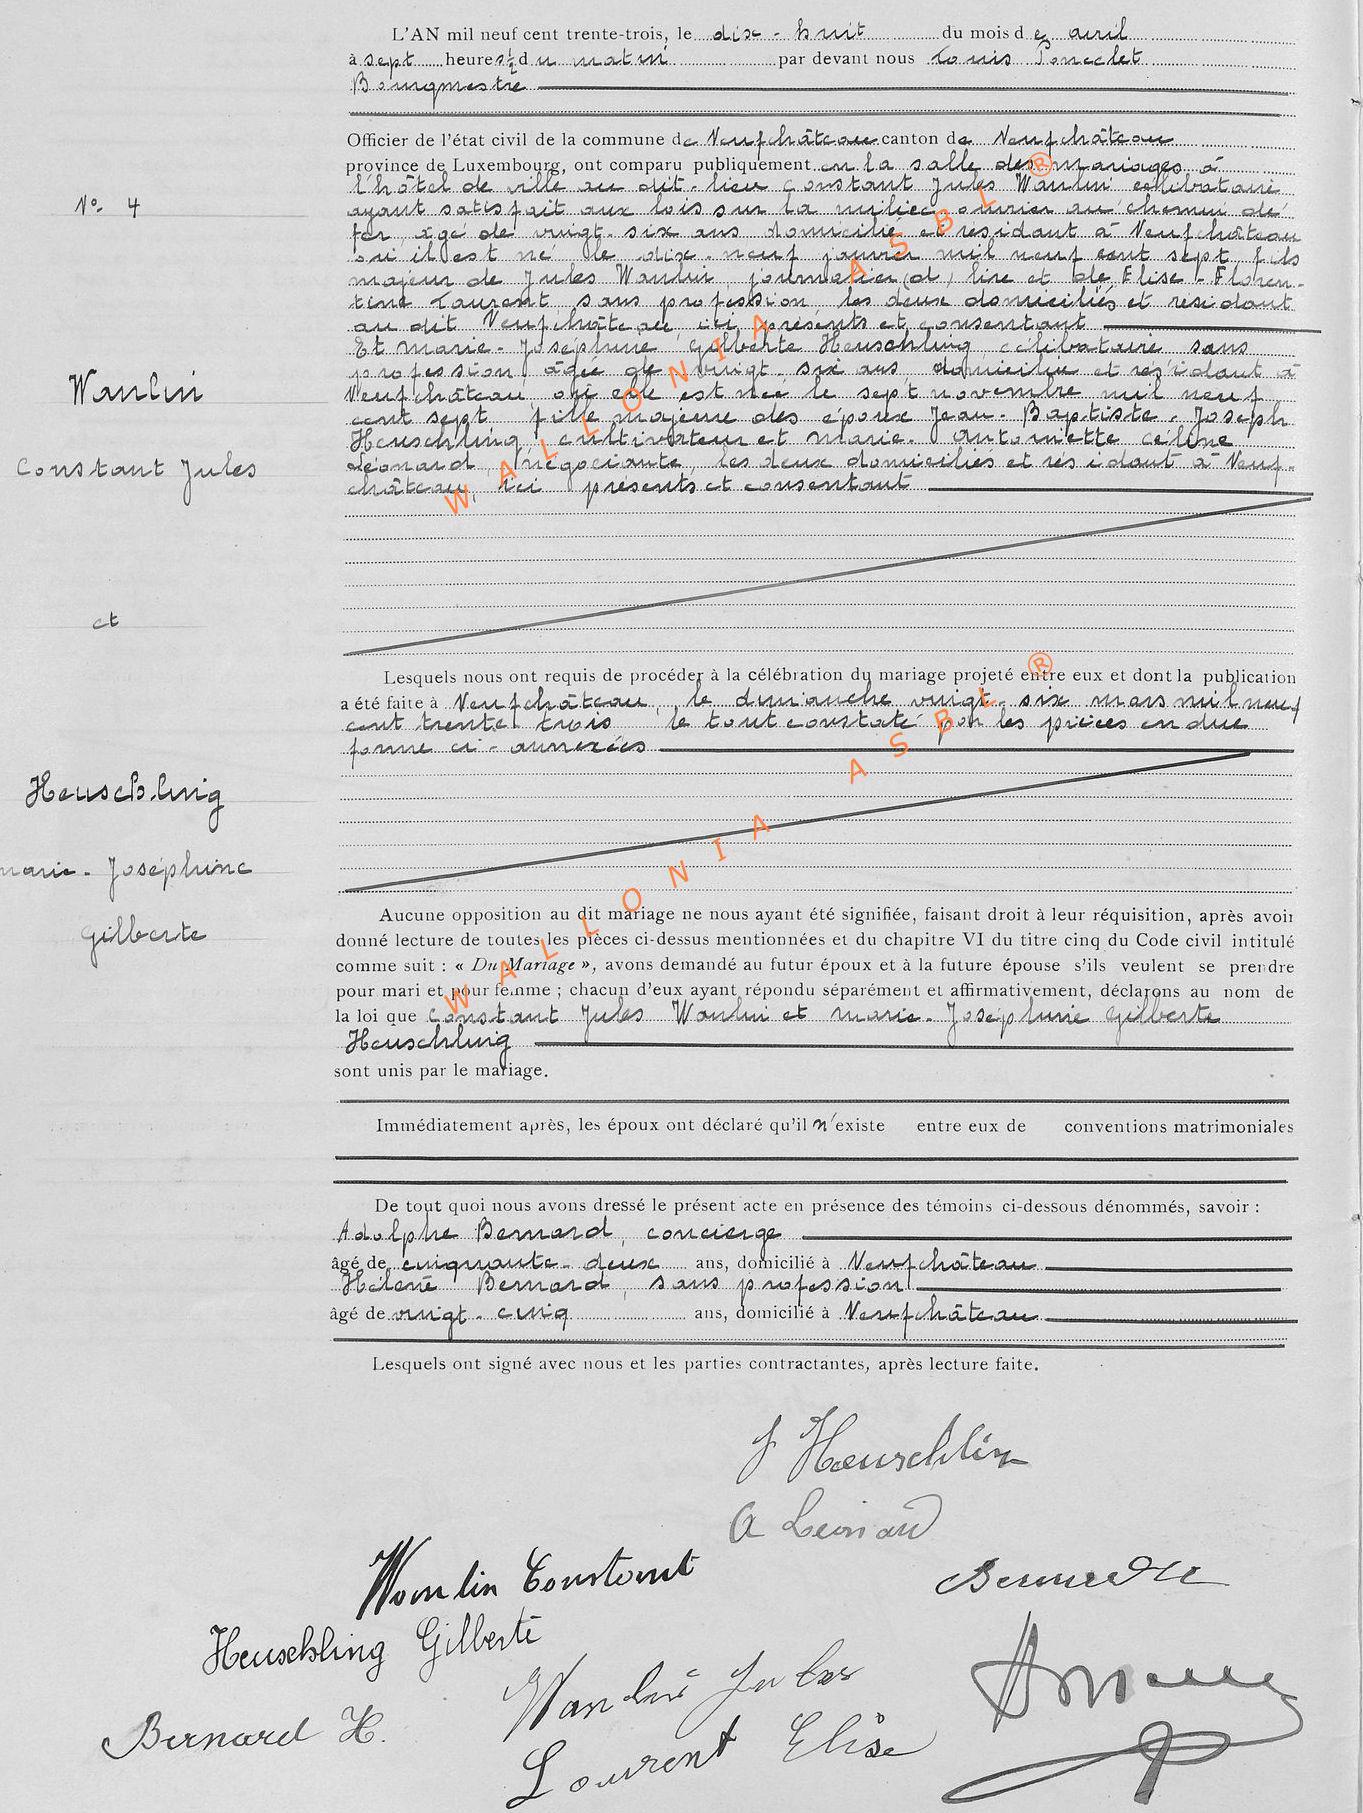 L'AN mil neuf cent trente-trois, le dix-huit du mois de avril
à sept heures ½ du matin par devant nous Louis Poncelet
Bourgmestre
Officier de l'état civil de la commune de Neufchâteau canton de Neufchâteau
province de Luxembourg, ont comparu publiquement en la salle des mariages à
l'hôtel de ville au dit-lieu Constant Jules Wanlin célibataire
N° 4
ayant satisfait aux lois sur la milice, ouvrier au chemin de
fer, âgé de vingt-six ans domicilié et résidant à Neufchâteau
où il est né le dix-neuf janvier mil neuf cent sept, fils
majeur de Jules Wanlin, journalier (d) lire et de Elise-Floren-
tine Laurent sans profession, les deux domiciliés et résidant
au dit Neufchâteau, ici présents et consentant
Et Marie-Joséphine Gilberte Heuschling, célibataire sans
profession, âgée de vingt-six ans, domiciliée et résidant à
Wanlin
Neufchâteau où elle est née le sept novembre mil neuf
cent sept, fille majeure des époux Jean-Baptiste-Joseph
Heuschling, cultivateur et Marie-Antoinette Celine
Constant Jules
Léonard, négociante, les deux domiciliés et résidant à Neuf-
château, ici présents et consentant
et
Lesquels nous ont requis de procéder à la célébration du mariage projeté entre eux et dont la publication
a été faite à Neufchâteau, le dimanche vingt-six mars mil neuf
cent trente trois, le tout constaté par les pièces en due
forme ci-annexées
Heuschling
Marie-Joséphine
Gilberte
Aucune opposition au dit mariage ne nous ayant été signifiée, faisant droit à leur réquisition, après avoir
donné lecture de toutes les pièces ci-dessus mentionnées et du chapitre VI du titre cinq du Code civil intitulé
comme suit : « Du Mariage », avons demandé au futur époux et à la future épouse s'ils veulent se prendre
pour mari et pour femme ; chacun d'eux ayant répondu séparément et affirmativement, déclarons au nom de
la loi que Constant Jules Wanlin et Marie-Joséphine Gilberte
Heuschling
sont unis par le mariage.
Immédiatement après, les époux ont déclaré qu'il n'existe entre eux de conventions matrimoniales
De tout quoi nous avons dressé le présent acte en présence des témoins ci-dessous dénommés, savoir :
Adolphe Bernard, concierge
âgé de cinquante-deux ans, domicilié à Neufchâteau
Hélène Bernard, sans profession
âgé de vingt-cinq ans, domicilié à Neufchâteau
Lesquels ont signé avec nous et les parties contractantes, après lecture faite.
J Heuschling
A Léonard
Wanlin Constant
Heuschling Gilberte
Wanlin Jules
Bernard H.
Laurent Elise
WALLONIA ASBL ®
WALLONIA ASBL ®